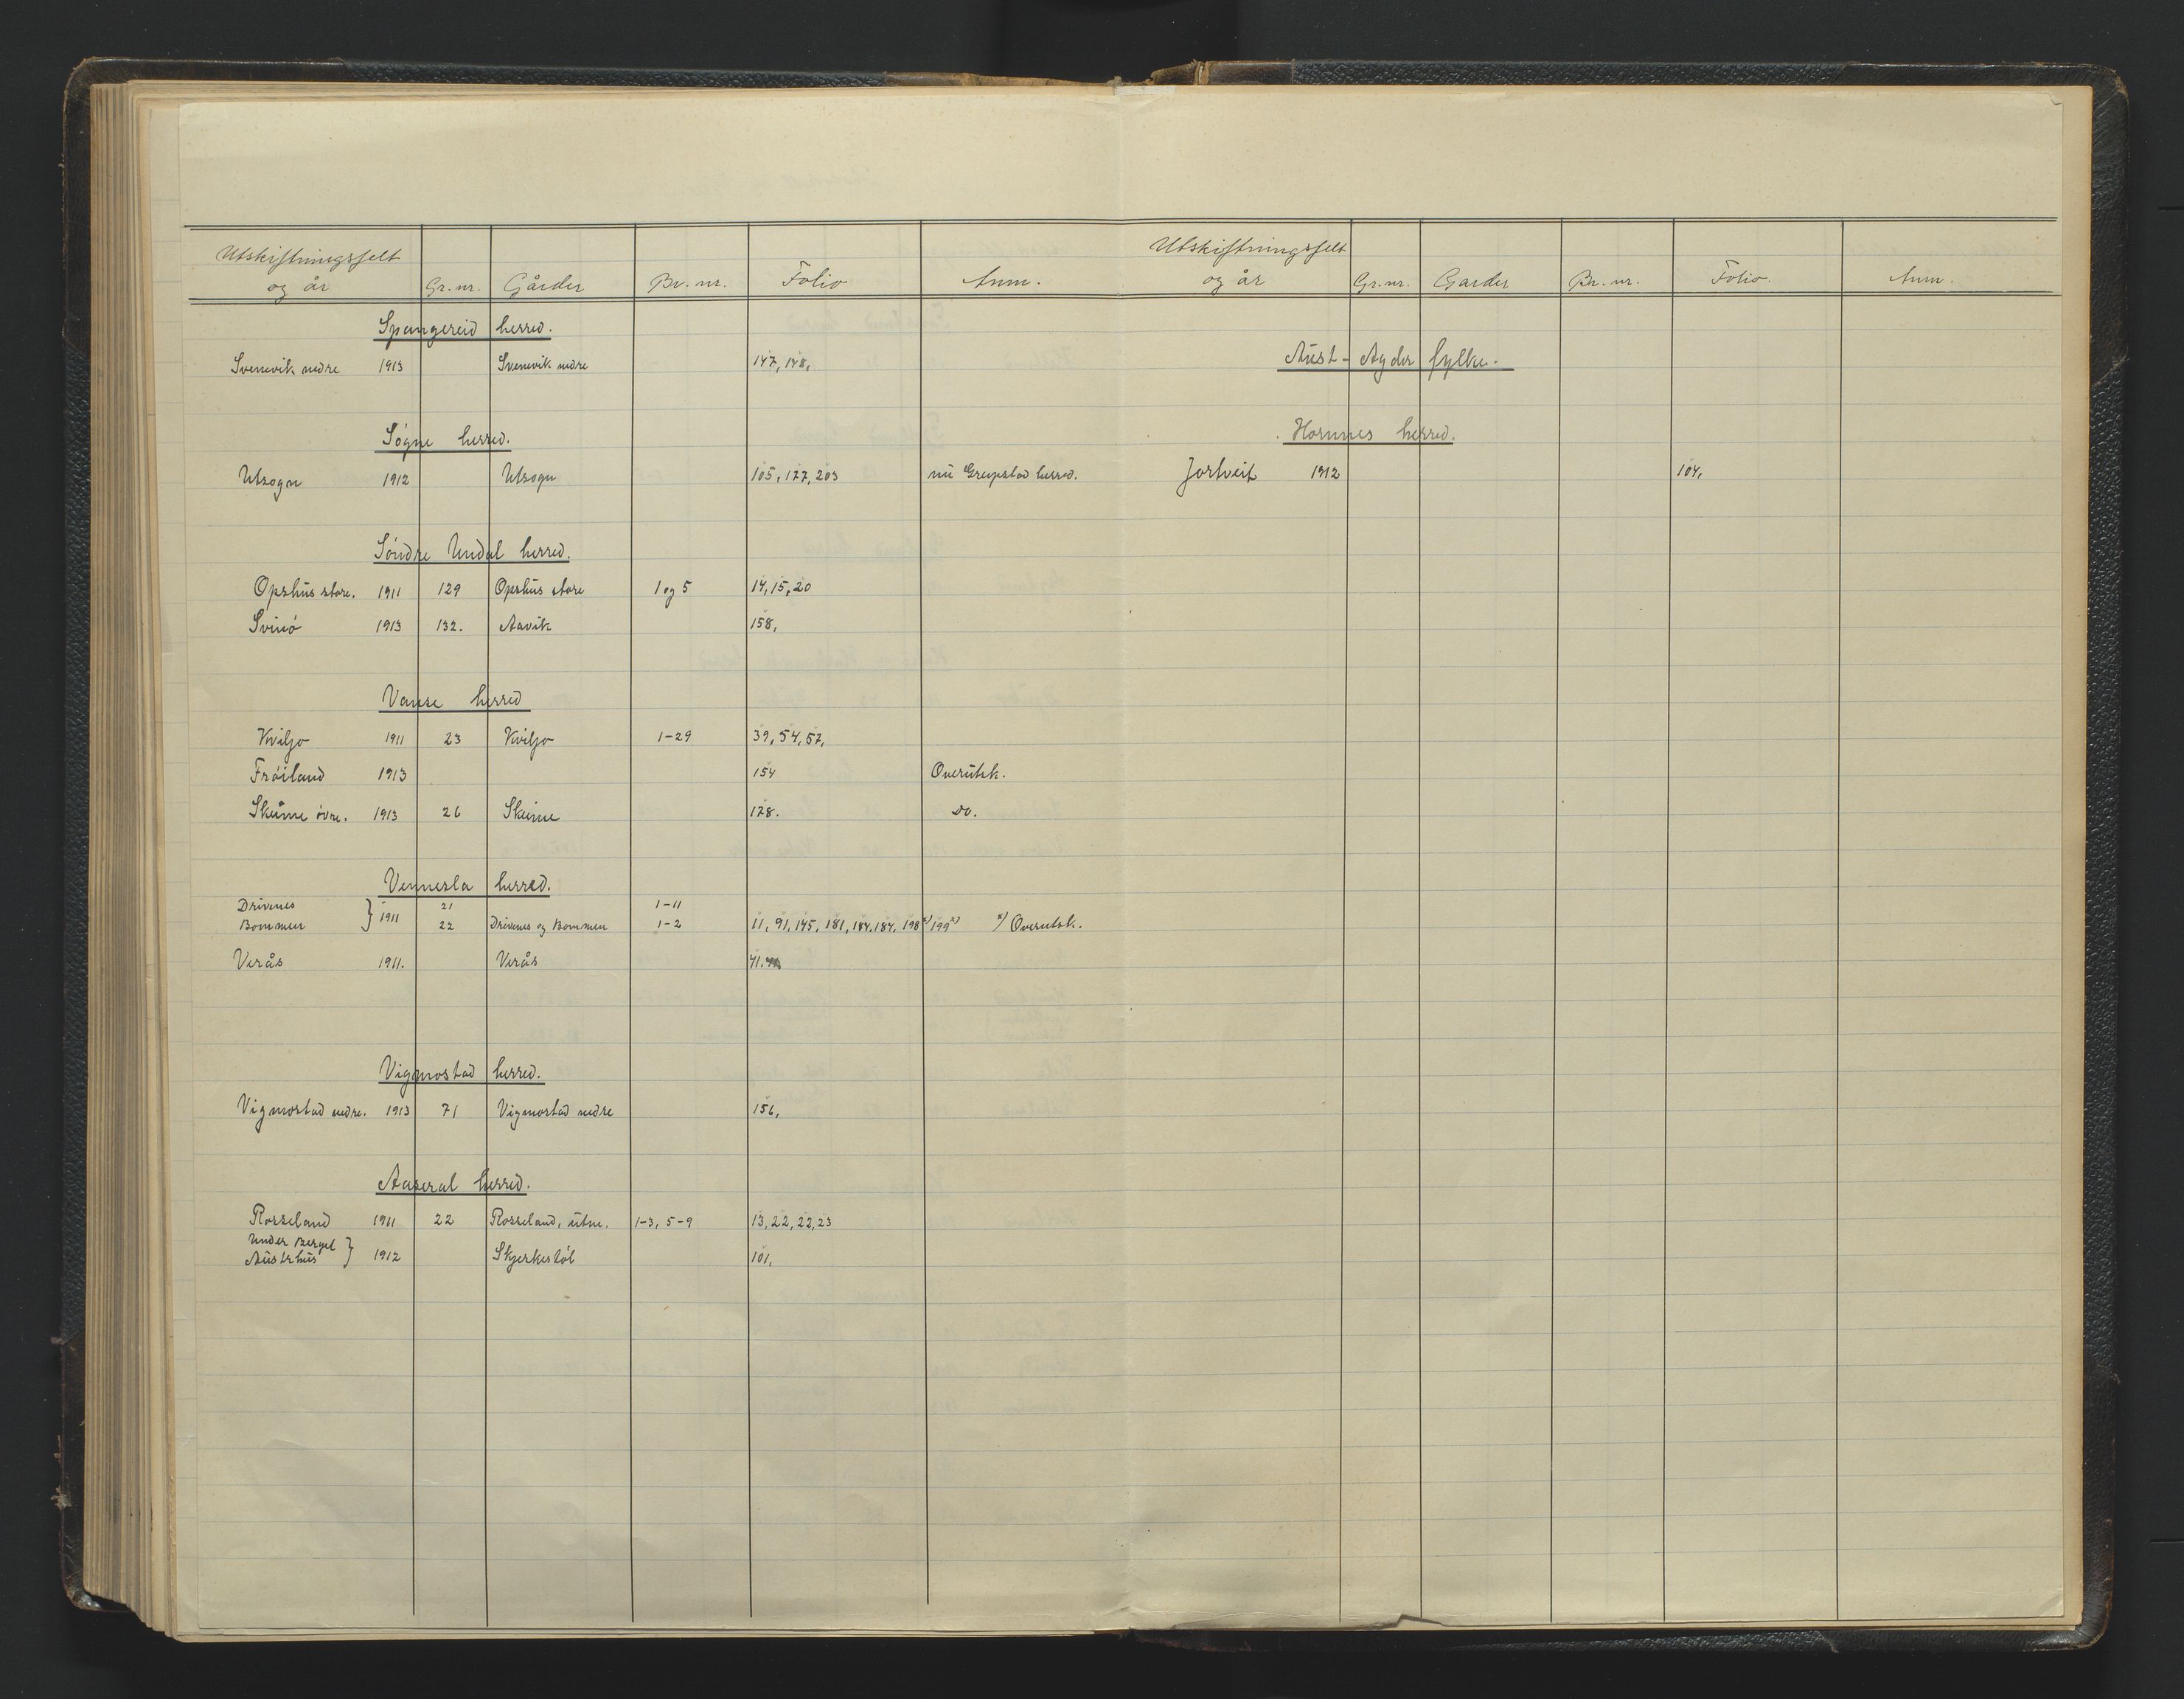 Utskiftningsfelt
og år Gr.nr. Gårder Br.nr. Folio Anm.
Spangereid herred.
Svenevik nedre 1913 Svenevik nedre 147, 148,
Søgne herred.
Utsogn 1912 Utsogn 105, 177, 203 nu Greipstad herred.
Søndre Undal herred.
Opshus store. 1911 129 Opshus store 1 og 5 14, 15, 20
Svinø 1913 132. Aavik 158,
Vanse herred
Kviljo 1911 23 Kviljo 1-29 39, 54, 57,
Frøiland 1913 154 Overutsk.
Skeime øvre. 1913 26 Skeime 178. Do.
Vennesla herred.
Drivenes } 1911 21 1-11
Bommen 22 Drivenes og Bommen 1-2 11, 91, 145, 181, 184. 184. 198x) 199x) x) Overutsk.
Verås 1911. Verås 41.
Vigmostad herred.
Vigmostad nedre. 1913 71 Vigmostad nedre 156,
Aaseral herred.
Rosseland 1911 22 Rosseland, utm. 1-3, 5-9 13, 22, 22, 23
Under Berget
Austrhus } 1912 Skjerkestøl 101,
Utskiftningsfelt
og år Gr.nr. Garder Br.nr. Folio. Anm.
Aust-Agder fylke.
Hornnes herred.
Jortveit 1912 104,